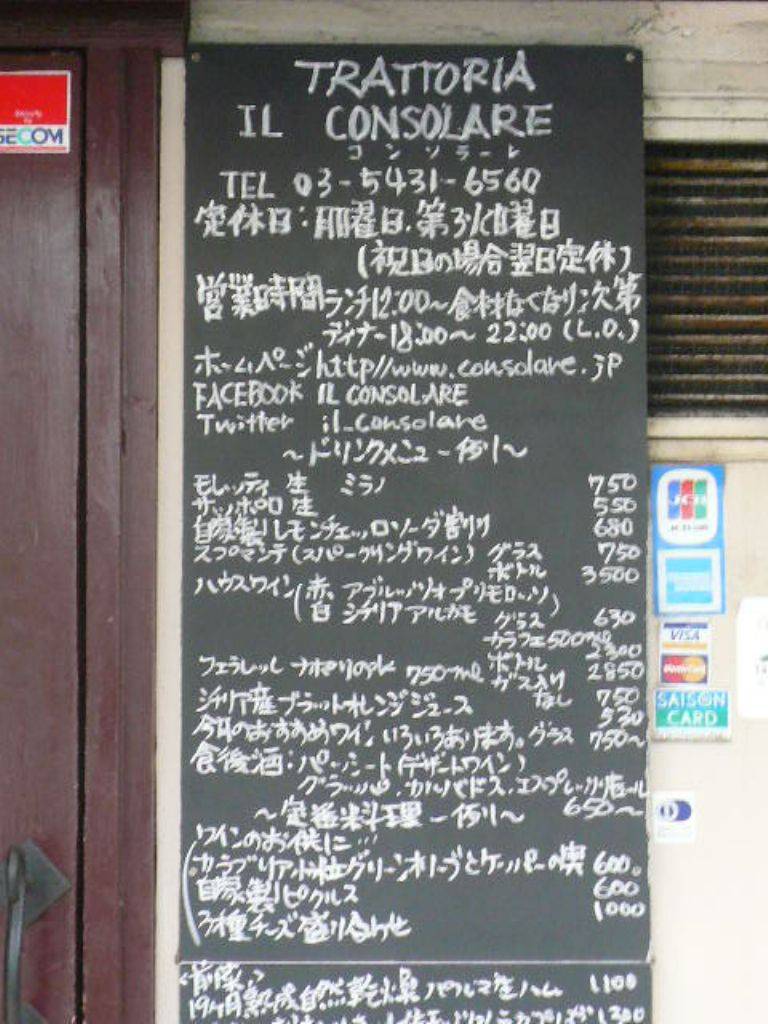 SECOM
TRATTORIA
IL CONSOLARE
コンソラーレ
TEL 03-5431-6560
定休日:月曜日.第3火曜日
(祝日の場合翌日定休)
営業時間 ランチ12:00~食材なくなり次第
ディナー18:00~22:00(L.O.)
ホームページ http//www.consolare.jp
FACEBOOK IL CONSOLARE
Twitter il_consolare
~ドリンクメニュー一例~
モレッティ生 ミラノ 750
サッポロ生 550
自家製リモンチェッロソーダ割り 680
スプマンテ(スパークリングワイン) グラス 750
ボトル 3500
ハウスワイン(赤 アブルッツオプリモロッソ)
白 シチリアアルカモ グラス 630
カラフェ500ml 2300
ボトル 2850
フェラレッレ ナポリの水 750ml ガス入り 750
なし 530
シチリア産ブラットオレンジジュース
今日のおすすめワイン いろいろあります。グラス 750~
食後酒:パッシート(デザートワイン)
グラッパ.カルバドス.エスプレッソ 650~
~定番料理一例~
ワインのお供に
カラブリア大粒グリーンオリーブとケッパーの実 600。
自家製ピクルス 600
3種チーズ盛り合わせ 1000
<前菜>
19ヶ月熟成自然乾燥パルマ生ハム 1100
1300
JCB
AMERICAN EXPRESS
VISA
MasterCard
SAISON
CARD